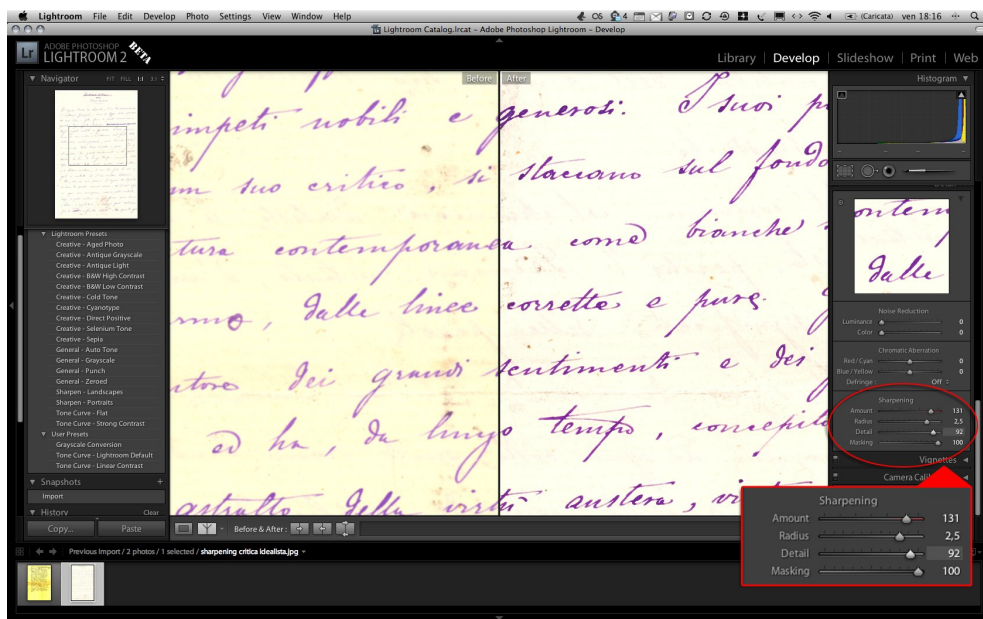 Lightroom File Edit Develop Photo Settings View Window Help
OS 4 (Caricata) ven 18:16
Lightroom Catalog.lrcat – Adobe Photoshop Lightroom – Develop
Lr ADOBE PHOTOSHOP
LIGHTROOM 2 BETA
Library | Develop | Slideshow | Print | Web
Navigator FIT FILL 1:1 3:1
Lightroom Presets
Creative - Aged Photo
Creative - Antique Grayscale
Creative - Antique Light
Creative - B&W High Contrast
Creative - B&W Low Contrast
Creative - Cold Tone
Creative - Cyanotype
Creative - Direct Positive
Creative - Selenium Tone
Creative - Sepia
General - Auto Tone
General - Grayscale
General - Punch
General - Zeroed
Sharpen - Landscapes
Sharpen - Portraits
Tone Curve - Flat
Tone Curve - Strong Contrast
User Presets
Grayscale Conversion
Tone Curve - Lightroom Default
Tone Curve - Linear Contrast
Snapshots +
Import
History Clear
Copy... Paste
Before After
impeti nobili e generosi. I suoi
un suo critico, si staccano sul fondo
tura contemporanea come bianche
rmo, dalle linee corrette e pure.
tore dei grandi sentimenti e dei
ed ha, da lungo tempo, concepito
astratto della virtù austera,
Before & After :
Histogram
ontem
dalle
Noise Reduction
Luminance 0
Color 0
Chromatic Aberration
Red / Cyan 0
Blue / Yellow 0
Defringe : Off
Sharpening
Amount 131
Radius 2,5
Detail 92
Masking 100
Vignettes
Camera Cali
Sharpening
Amount 131
Radius 2,5
Detail 92
Masking 100
Previous Import / 2 photos / 1 selected / sharpening critica idealista.jpg